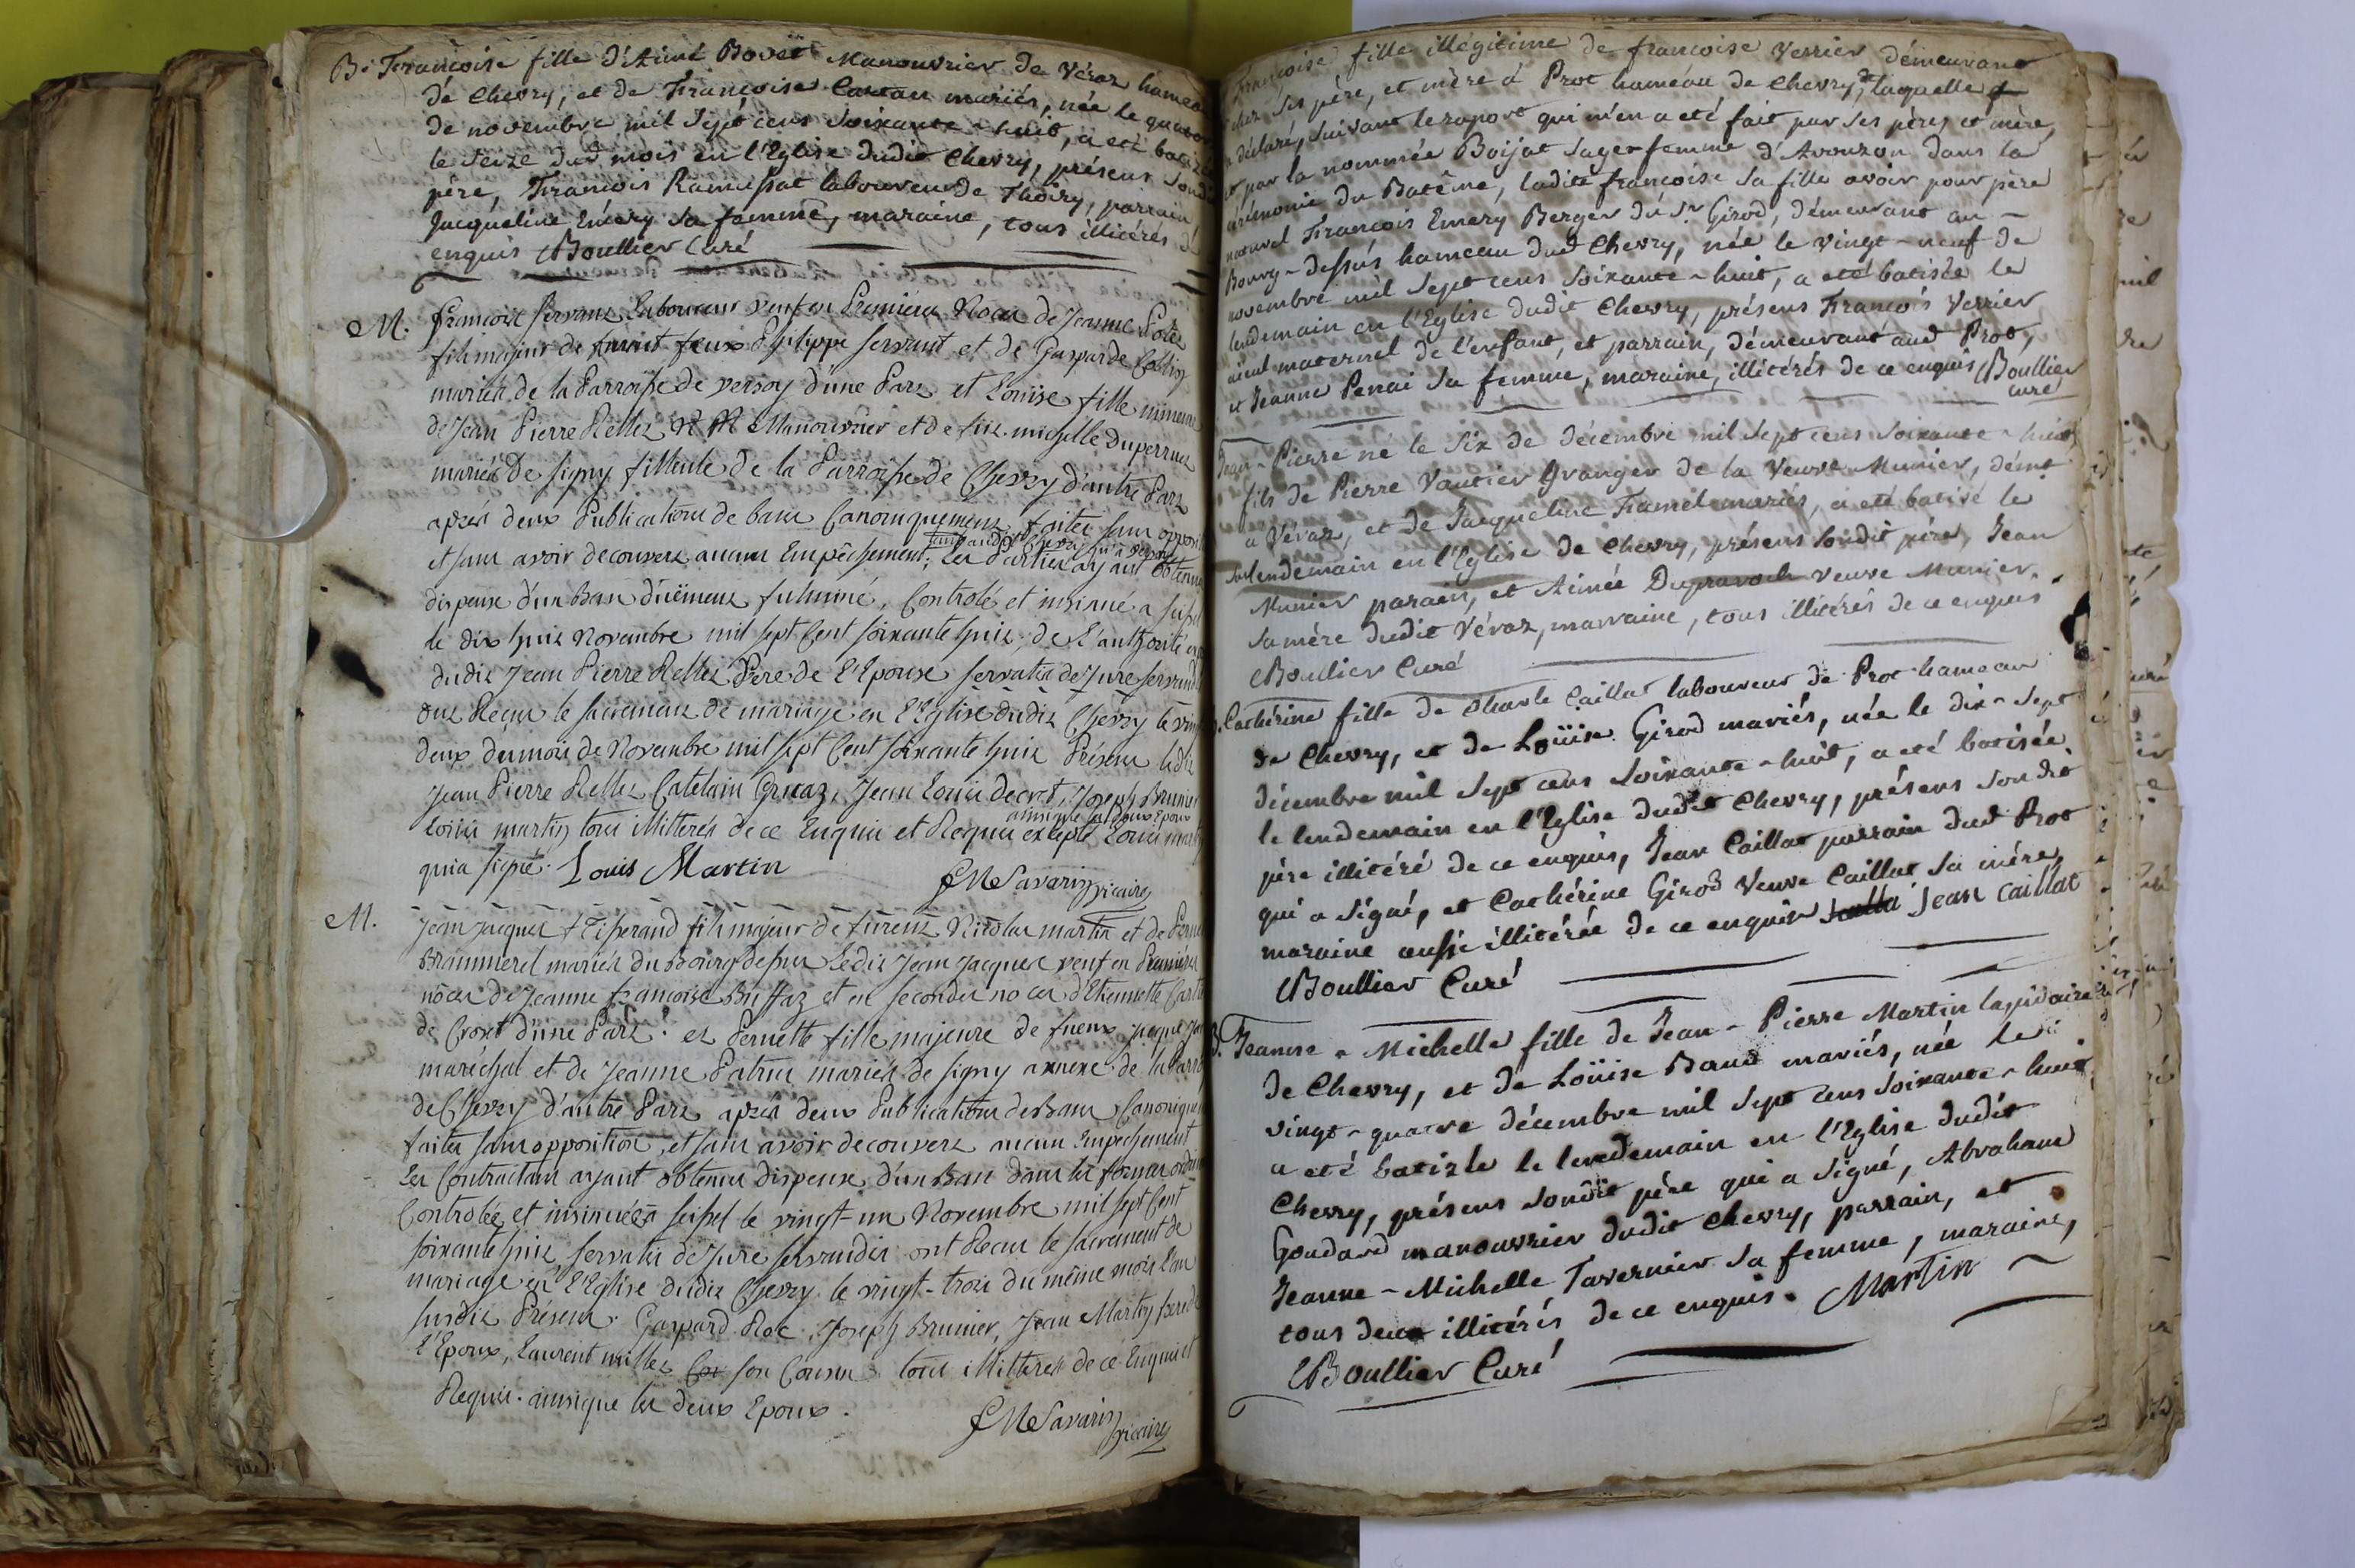 B. Françoise fille d'Aimé Bovet Manouvrier de Véraz hameau
de Chevry, et de Françoise Cartan mariés, née le quator
de novembre mil sept cens soixante-huit, a eté batizée
le seize dud. mois en l'Eglise dudit Chevry, présens sondit
père, François Ramussat laboureur de Thoiry, parrain
Jacqueline Emery sa femme, maraine, tous illitérés de
enquis Boullier Curé
M. françois servant Laboureur veuf en Premiere Noces de Jeanne
fils majeur de furent feux Philippe servant et de Gasparde
mariés de la Parroisse de versoy d'une Part et Louise fille mineure
de Jean Pierre Rellez Manouvrier et de fût michelle Duperruz
mariés de signy filleule de la Parroisse de Chevry d'autre Part
après deux Publications de bans Canoniquement faites sans opposit
tant audit Chevry qu'à versoy
et sans avoir decouvert aucun Empêchement, Les Parties ayant obtenu
dispense d'un Ban düement fulminé, Controlé et insinué a seissel
le dix huit Novembre mil sept Cent soixante huit, de L'authorité
dudit Jean Pierre Rellez Pere de L'Epouse servatis de Jure servandis
ont Recu le sacrement de mariage en L'Eglise dudit Chevry le vingt
deux du mois de Novembre mil sept Cent soixante huit Présens ledit
Jean Pierre Rellez Catelain Gruaz, Jean Louis Decret, Joseph Brunier
ainsi que les deux Epoux
Louis martin tous illitterés de ce Enquis et Requis excepté Louis martin
qui a signé. Louis Martin
JMeSavarin vicaire
M. Jean Jacques Tisserand fils majeur de furent Nicolas martin et de Perne
Brammerel mariés du Bourg dessus Ledit Jean Jacques veuf en Premiéres
nôces de Jeanne françoise Buffaz et en secondes noces d'Etiennette
de Crozet d'une Part: et Pernette fille majeure de fueux
maréchal et de Jeanne Patrus mariés de signy annexe de la Parro
de Chevry d'autre Part après deux Publications des Bans Canonique
faites sans opposition, et sans avoir decouvert aucun Empechement
Les Contractans ayant obtenu dispense d'un Ban dans les formes ordin
Controlée et insinuée à seissel le vingt-un Novembre mil sept Cent
soixante huit, servatis de Jure servandis ont Recu le sacrement de
mariage en l'Eglise dudit Chevry le vingt-trois du même mois L'an
susdit Présens. Gaspard Roc, Joseph Brunier, Jean Martin frere de
l'Epoux, Laurent son Cousin tous illitterés de ce Enquis et
Requis. ainsique les deux Epoux.
JMeSavarin vicaire
Françoise fille illégitime de françoise Verrier démeurant
chez ses père, et mère à Prot hameau de Chevry, laquelle
a déclaré, suivant le raport qui m'en a eté fait par ses pères et mère,
et par la nommée Boijat sage-femme d'Avouzon dans la
cérémonie du Batême, ladite françoise sa fille avoir pour père
naturel François Emery Berger du Sr Girod, démeurant au -
Bourg-dessus hameau dud. Chevry, née le vingt-neuf de
novembre mil sept cens soixante-huit, a eté batisée le
lendemain en l'Eglise dudit Chevry, présens François Verrier
aïeul maternel de l'enfant, et parrain, démeurant aud. Prot,
et Jeanne Perrai sa femme, maraine, illitérés de ce enquis Boullier
curé
Jean-Pierre né le six de décembre mil sept cens soixante-huit
fils de Pierre Vautier Granger de la Veuve Munier, démt
a Véraz, et de Jacqueline Tramel mariés, a eté batisé le
surlendemain en l'Eglise de Chevry, présens sondit père, Jean
Munier parain, et Aimée Dupravoch veuve Munier
sa mère dudit Véraz, marraine, tous illitérés de ce enquis
Boullier Curé
Cathérine fille de Charle Caillat laboureur de Prot hameau
de Chevry, et de Loüise Girod mariés, née le dix-sept
décembre mil sept cens soixante-huit, a eté batisée
le lendemain en l'Eglise dudit Chevry, présens sondit
père illitéré de ce enquis, Jean Caillat parrain dud Prot
qui a signé, et Cathérine Girod Veuve Caillat sa mère,
maraine aussi illitérée de ce enquise Jean Caillat
Boullier Curé
Jeanne-Michelle fille de Jean-Pierre Martin lapidaire
de Chevry, et de Loüise Baud mariés, née le
vingt-quatre décembre mil sept cens soixante-huit
a eté batizée le lendemain en l'Eglise dudit
Chevry, présens sondit père qui a signé, Abraham
Goudard manouvrier dudit Chevry, parrain, et
Jeanne-Michelle Tavernier sa femme, maraine,
tous deux illitérés de ce enquis. Martin
Boullier Curé